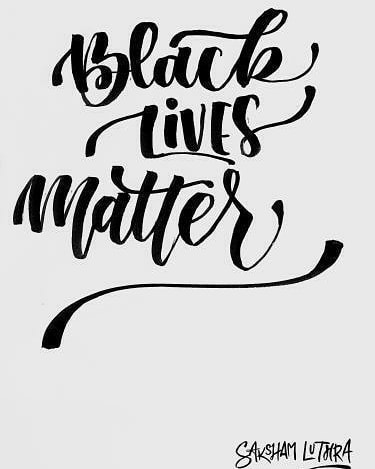 Black
LIVES
Matter
SAKSHAM LUTHRA